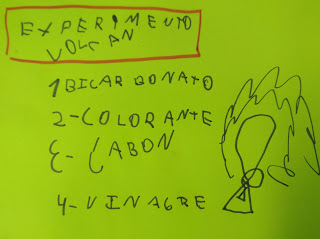 EXPERIMENTO
VOLCAN
1 BICARBONATO
2-COLORANTE
3-JABON
4-VINAGRE